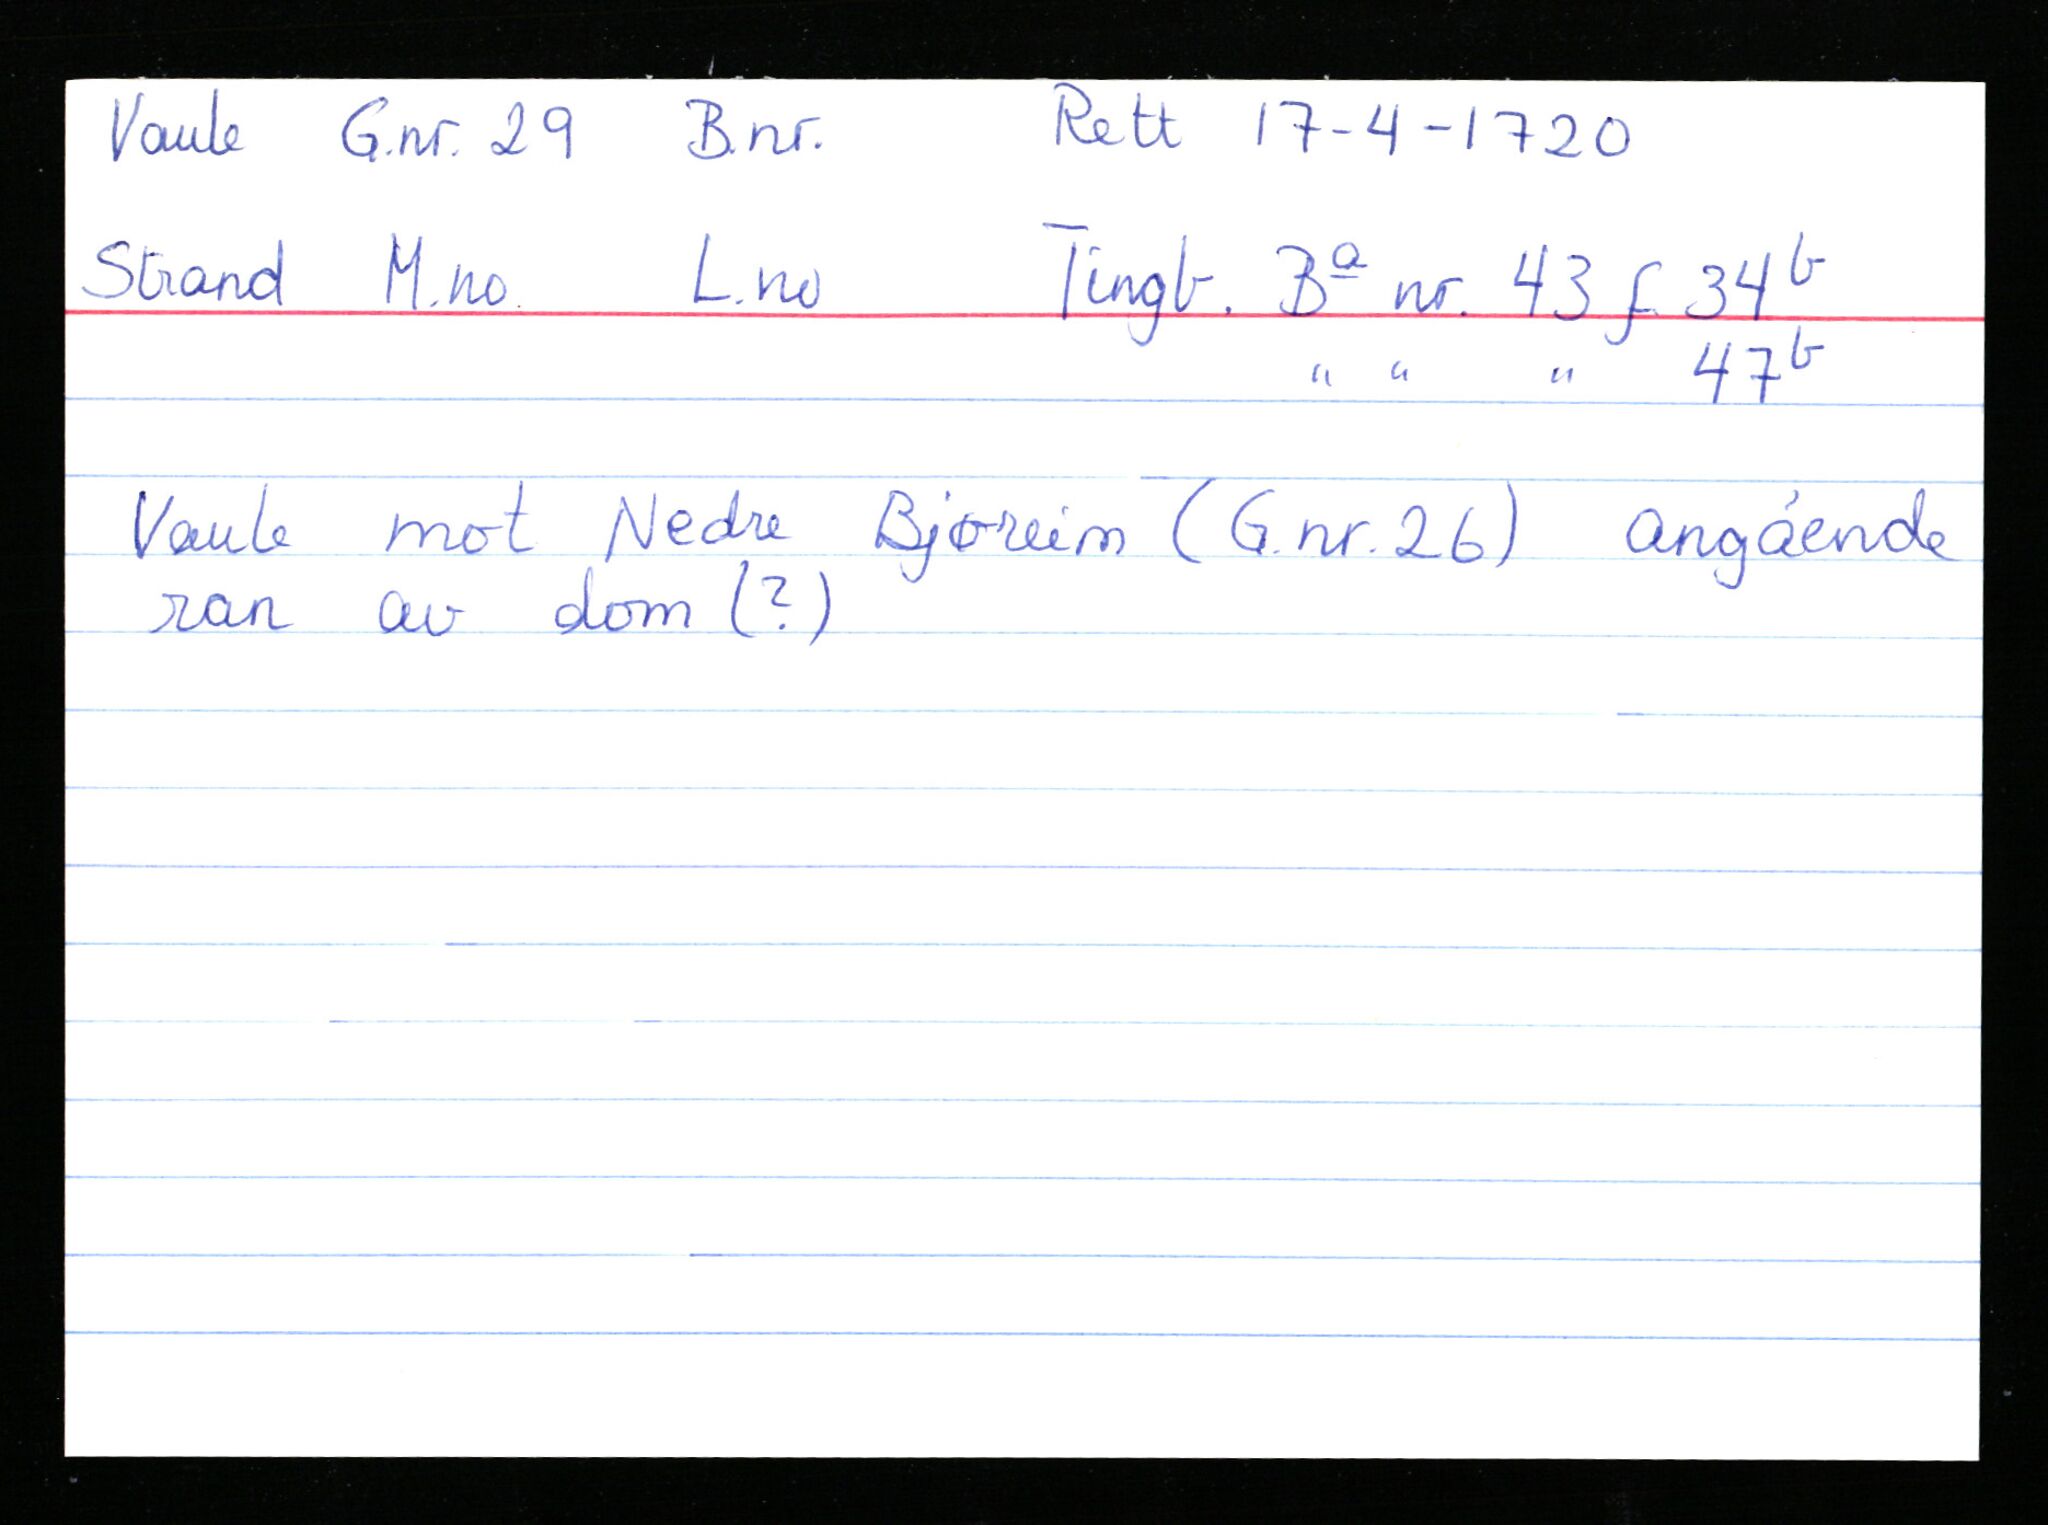 Vaule G.nr. 29 B.nr. Rett 17-4-1720
Strand M.no. L.no Tingb. Bª nr. 43 f. 34ᵇ
" " " 47ᵇ
Vaule mot Nedre Bjøreim (G.nr. 26) angående
ran av dom (?)